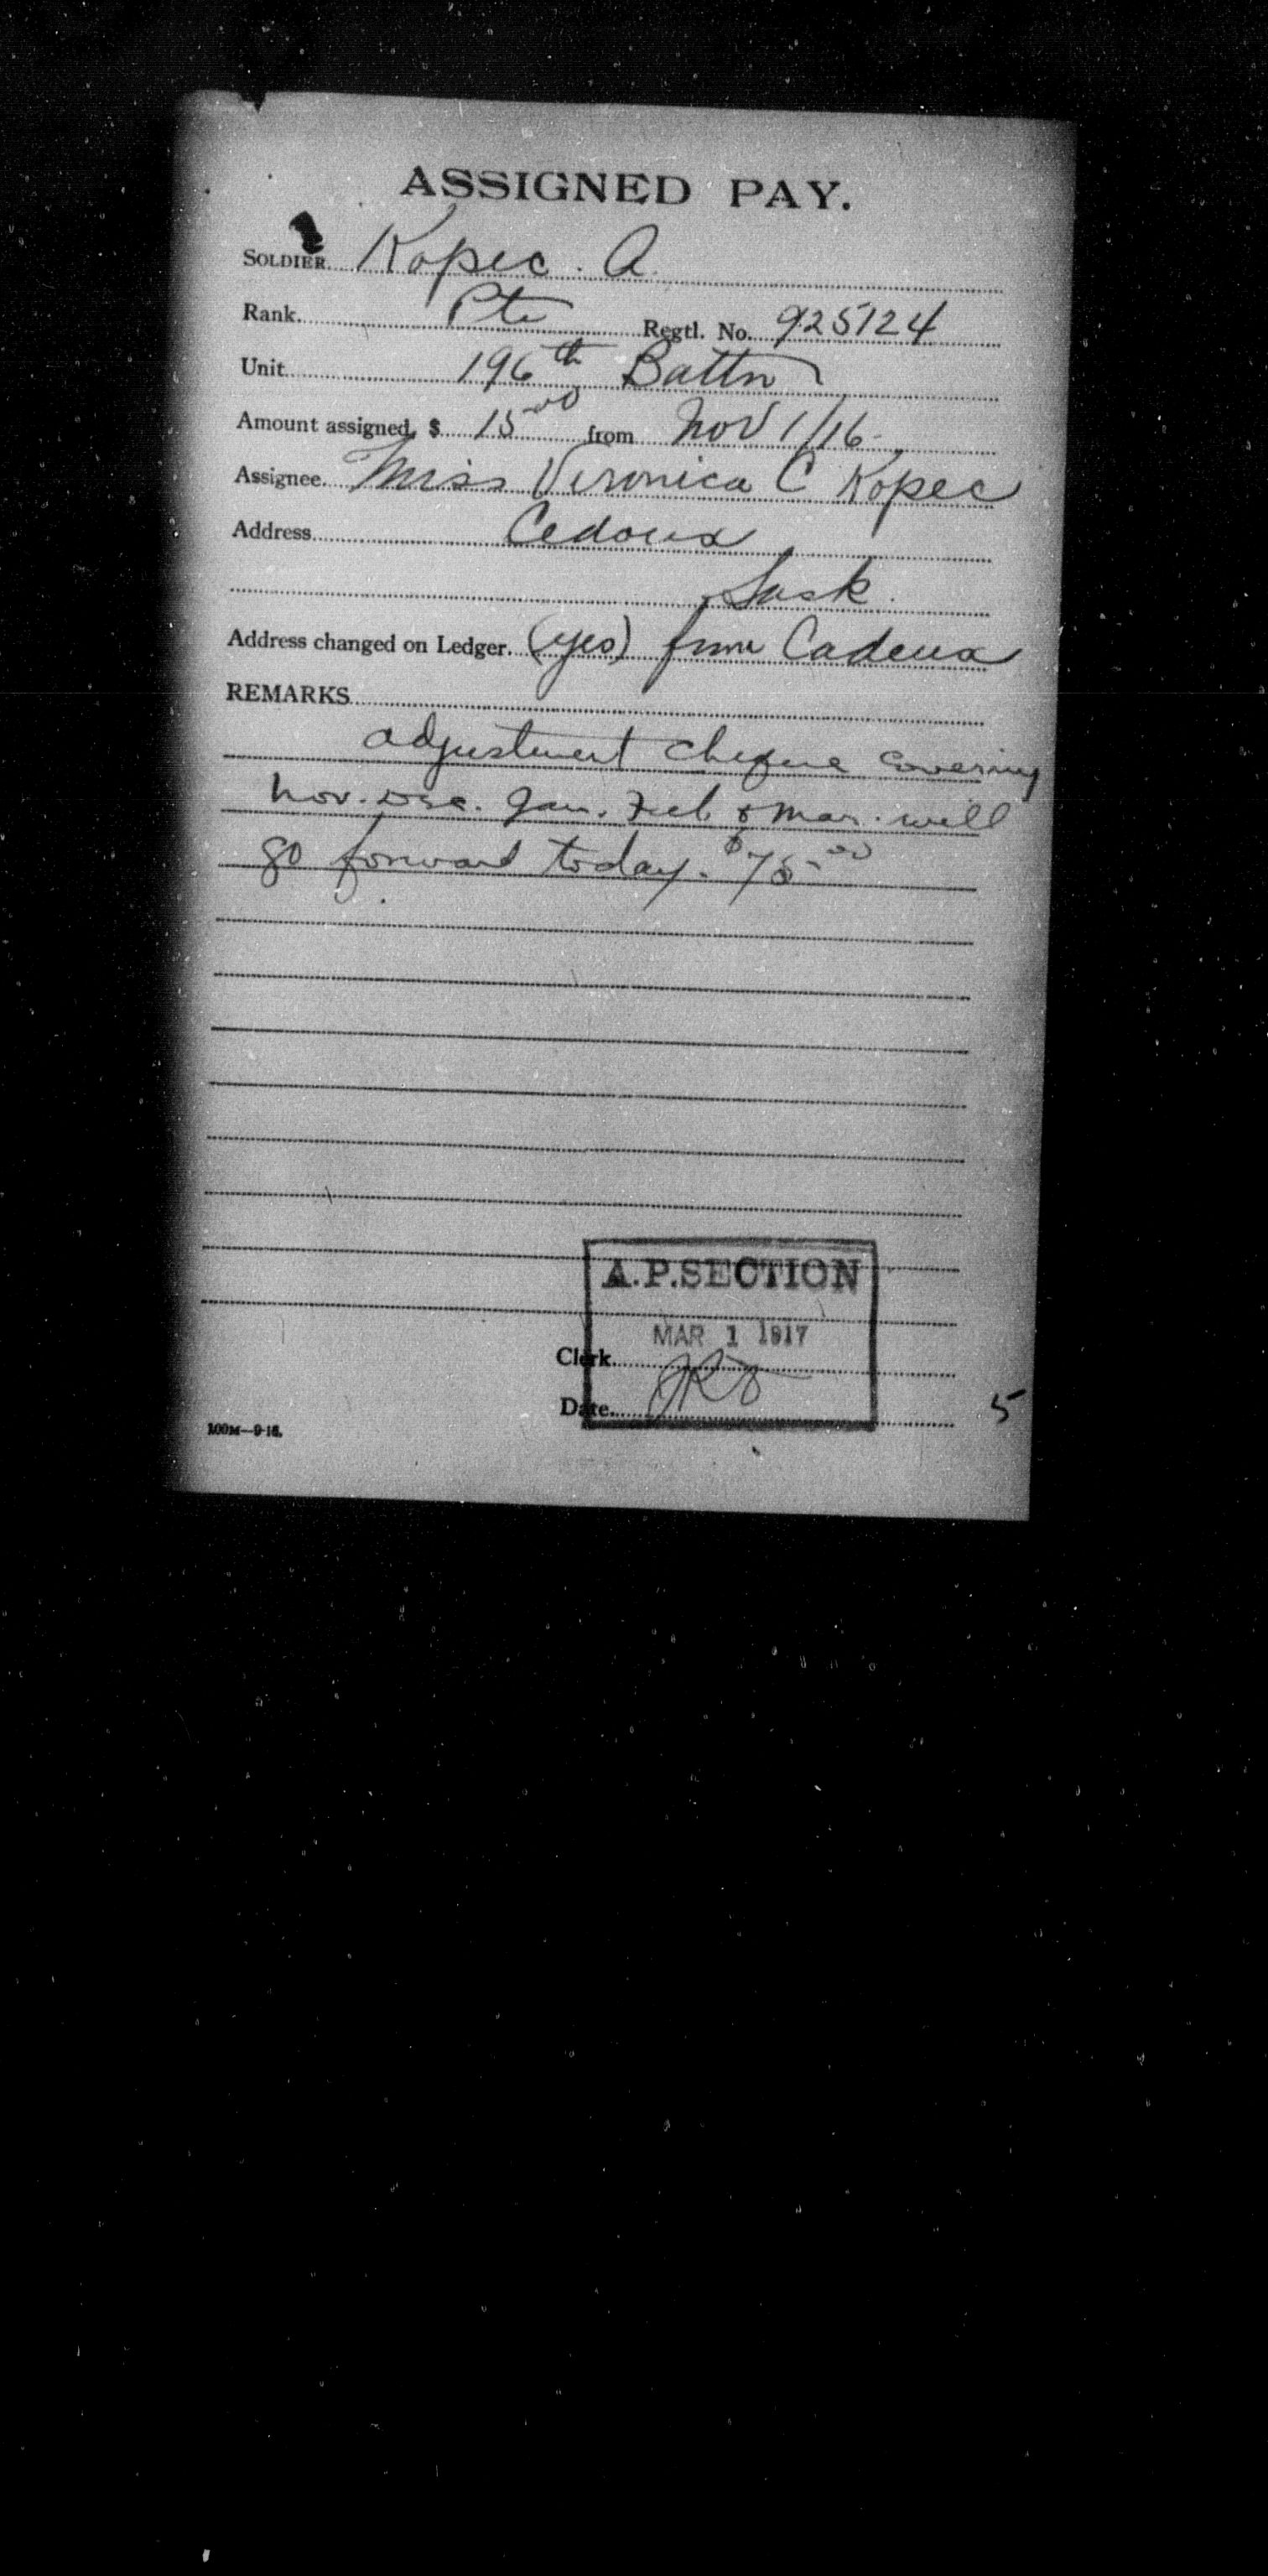 ASSIGNED PAY.
SOLDIER Kopec. A.
Rank Pte Regtl. No. 925124
Unit 196th Battn
Amount assigned $ 15 00 from Nov 1/16.
Assignee. Miss Veronica C Kopec
Address Cedoux
Sask.
Address changed on Ledger. (yes) from Cadeux
REMARKS
adjustment cheque covering
Nov. Dec. Jan. Feb & Mar. will
go forward today. $75 00
A.P.SECTION
MAR 1 1917
Clerk
Date
5
100M—9-16.